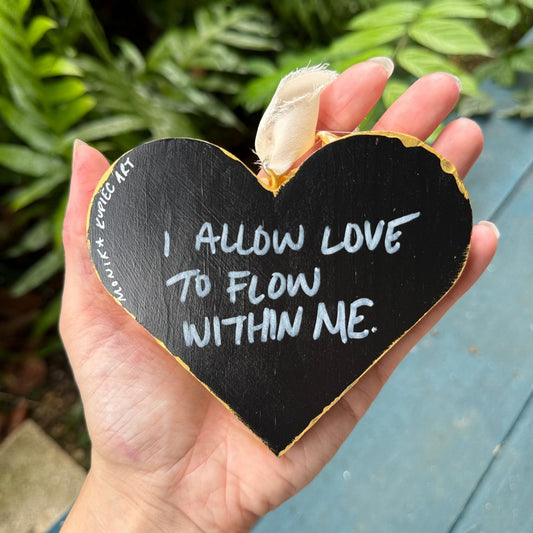 MONIKA KUPIEC ART
I ALLOW LOVE
TO FLOW
WITHIN ME.